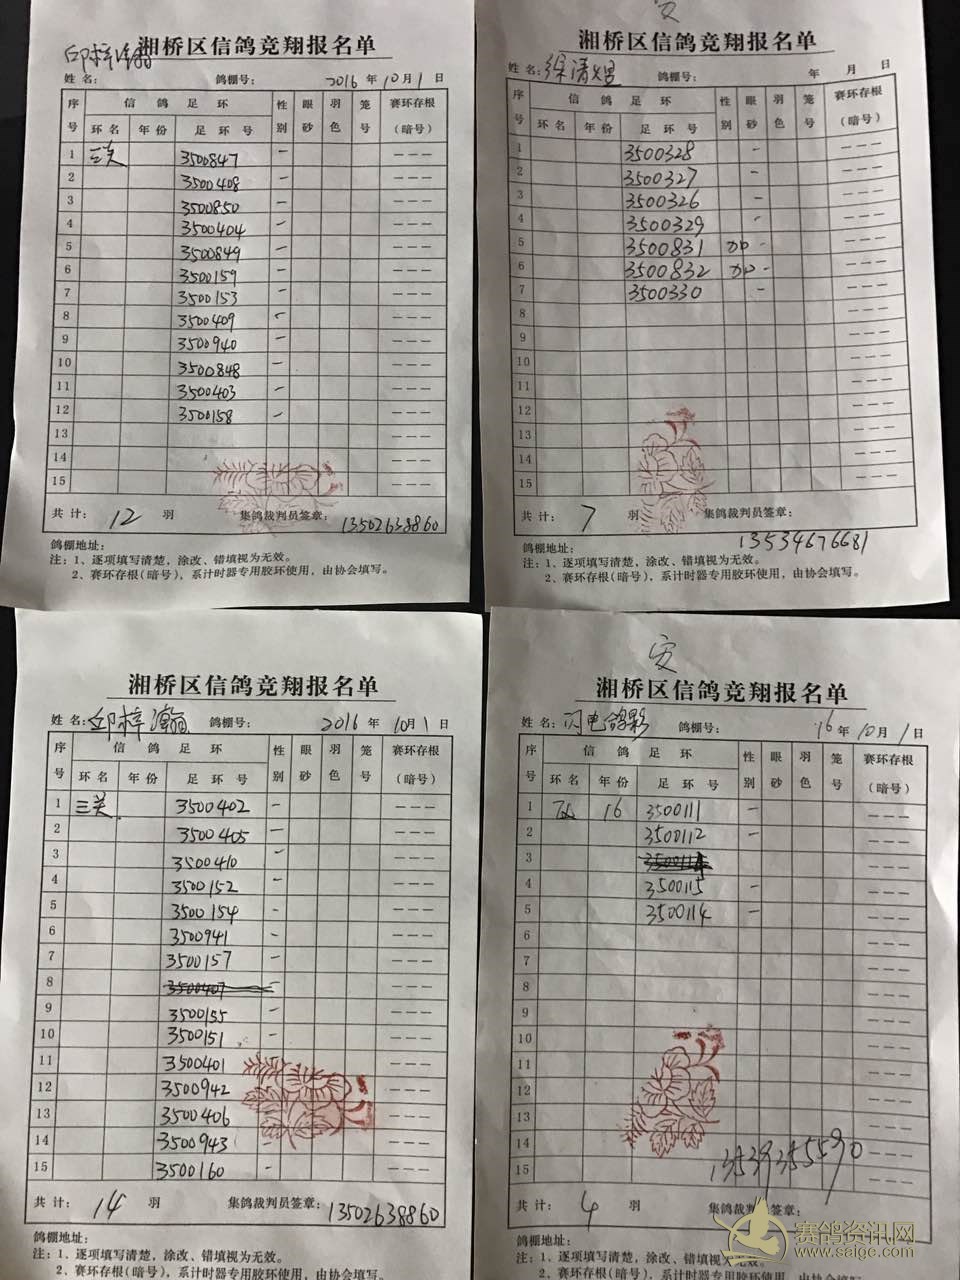 湘桥区信鸽竞翔报名单
姓名: 邱梓瀚 鸽棚号: 2016 年 10 月 1 日
序号 信鸽足环 性别 眼砂 羽色 笼号 赛环存根(暗号)
环名 年份 足环号
1 三关 3500847 -
2 3500408 -
3 3500850 -
4 3500404 -
5 3500849 -
6 3500159 -
7 3500153 -
8 3500409 -
9 3500940 -
10 3500848 -
11 3500403 -
12 3500158 -
13
14
15
共计: 12 羽 集鸽裁判员签章: 13502638860
鸽棚地址:
注: 1、逐项填写清楚，涂改、错填视为无效。
2、赛环存根(暗号)，系计时器专用胶环使用，由协会填写。
湘桥区信鸽竞翔报名单
姓名: 徐清 鸽棚号: 年 月 日
序号 信鸽足环 性别 眼砂 羽色 笼号 赛环存根(暗号)
环名 年份 足环号
1 3500328 -
2 3500327 -
3 3500326 -
4 3500329 -
5 3500831 加 -
6 3500832 加 -
7 3500330 -
8
9
10
11
12
13
14
15
共计: 7 羽 集鸽裁判员签章:
13534676681
鸽棚地址:
注: 1、逐项填写清楚，涂改、错填视为无效。
2、赛环存根(暗号)，系计时器专用胶环使用，由协会填写。
湘桥区信鸽竞翔报名单
姓名: 邱梓瀚 鸽棚号: 2016 年 10 月 1 日
序号 信鸽足环 性别 眼砂 羽色 笼号 赛环存根(暗号)
环名 年份 足环号
1 三关 3500402 -
2 3500405 -
3 3500410 -
4 3500152 -
5 3500154 -
6 3500941 -
7 3500157 -
8 3500407 -
9 3500155 -
10 3500151 -
11 3500401 -
12 3500942 -
13 3500406 -
14 3500943 -
15 3500160 -
共计: 14 羽 集鸽裁判员签章: 13502638860
鸽棚地址:
注: 1、逐项填写清楚，涂改、错填视为无效。
2、赛环存根(暗号)，系计时器专用胶环使用，由协会填写。
湘桥区信鸽竞翔报名单
姓名: 闪电鸽影 鸽棚号: 16 年 10 月 1 日
序号 信鸽足环 性别 眼砂 羽色 笼号 赛环存根(暗号)
环名 年份 足环号
1 16 3500111 -
2 3500112 -
3
4 3500115 -
5 3500114 -
6
7
8
9
10
11
12
13
14
15
13539355590
共计: 4 羽 集鸽裁判员签章:
鸽棚地址:
注: 1、逐项填写清楚，涂改、错填视为无效。
2、赛环存根(暗号)，系计时器专用胶环使用，由协会填写。
赛鸽资讯网
www.saigc.com